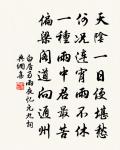 天陰一日便堪愁
何況連宵雨不休
一種雨中君最苦
偏梁閣道向通州
白居易雨夜憶元九詞